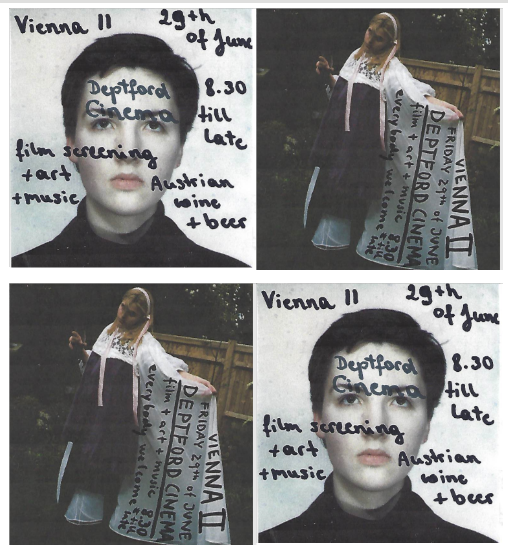 Vienna II
29th
of June
Deptford
Cinema
8.30
till
late
film screening
+ art
+ music
Austrian
wine
+ beer
VIENNA II
FRIDAY 29th of JUNE
DEPTFORD CINEMA
film + art + music 8.30
everybody welcome till
late
VIENNA II
FRIDAY 29th of JUNE
DEPTFORD CINEMA
film + art + music 8.30
everybody welcome till
late
Vienna II
29th
of June
Deptford
Cinema
8.30
till
late
film screening
+ art
+ music
Austrian
wine
+ beer